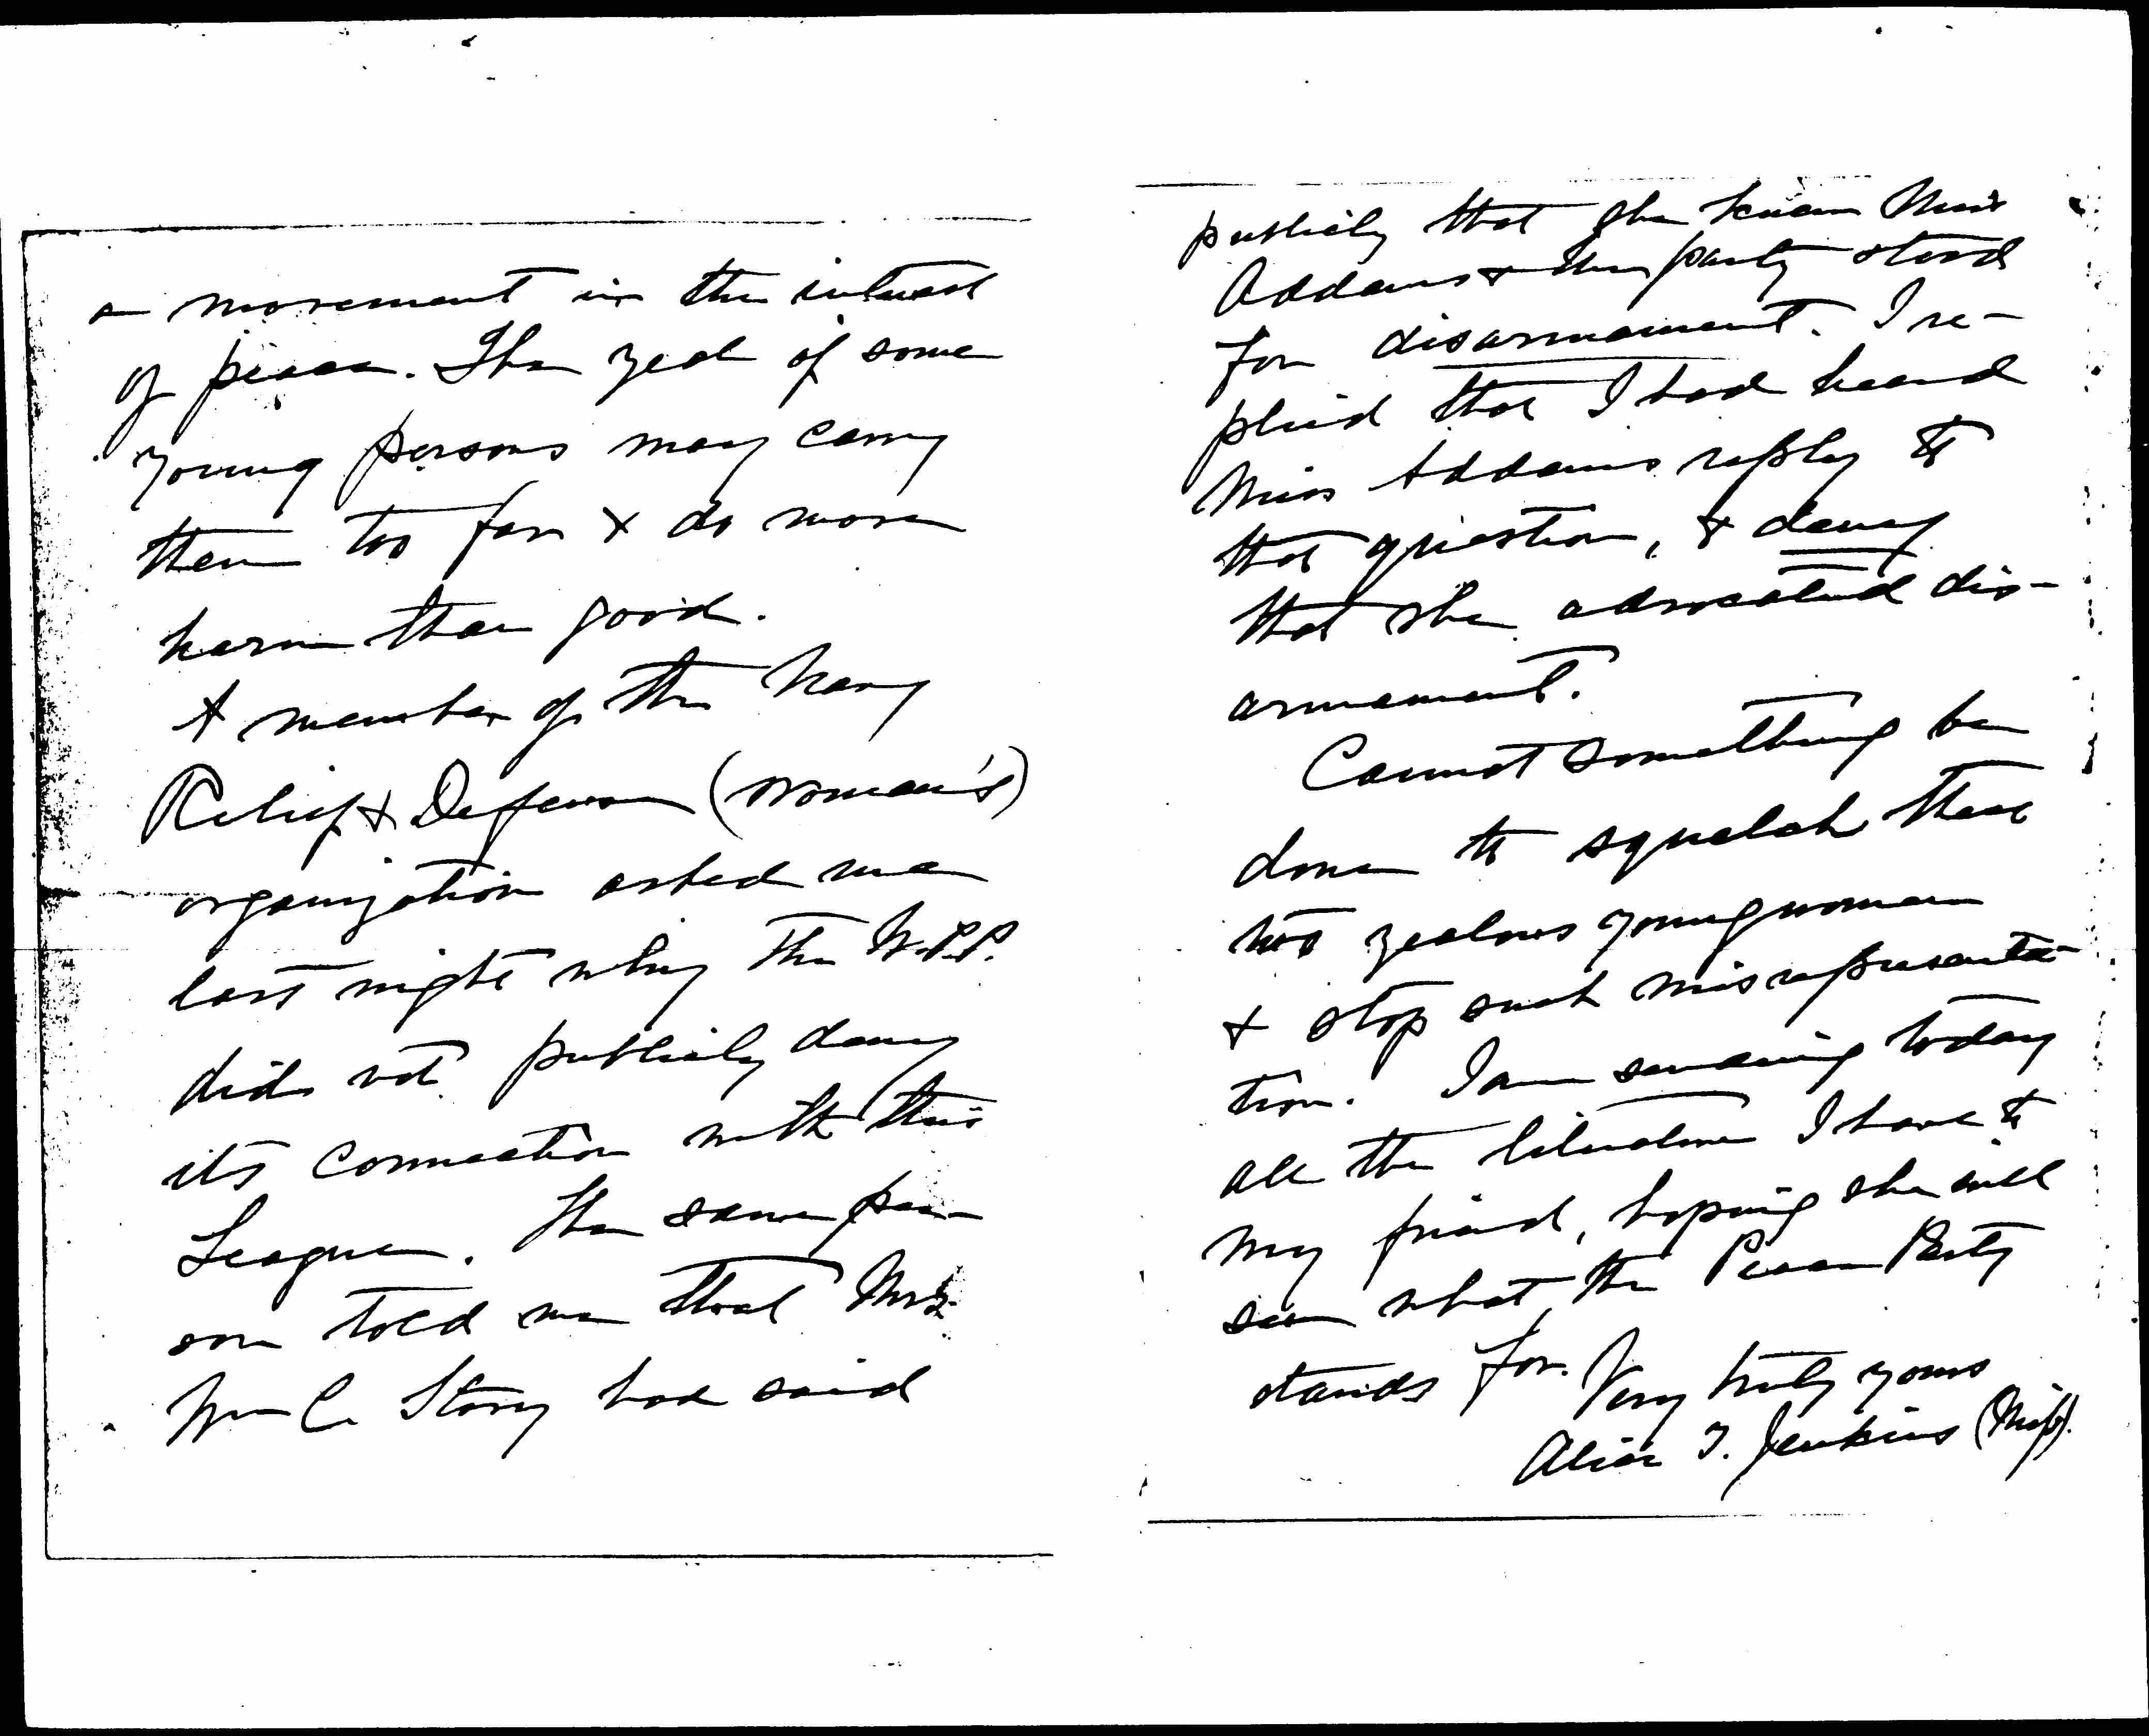 a movement in the interest
of peace. The zeal of some
young persons may carry
them too far & do more
harm than good.
A member of the Navy
Relief & Defense (woman's)
organization asked me
last night why the W.P.P.
did not publicly deny
its connection with this
League. The same per-
son told me that Mrs.
Wm C. Story had said
publicly that she knew Miss
Addams & her party stood
for disarmament. I re-
plied that I had heard
Miss Addams reply to
that question, & deny
that she advocated dis-
armament.
Cannot something be
done to squelch these
too zealous young women
& stop such misrepresenta-
tion. I am sending today
all the literature I have to
my friend, hoping she will
see what the Peace Party
stands for. Very truly yours
Alice T. Jenkins (Miss).